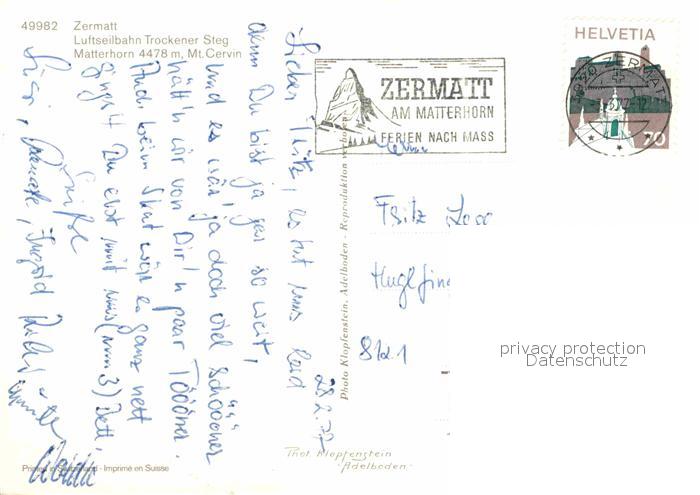 49982 Zermatt
Luftseilbahn Trockener Steg
Matterhorn 4478 m, Mt. Cervin
Lieber Fritz, es tut uns leid
denn Du bist ja gar so weit,
und es wär' ja doch viel schööner
hätt'n wir von Dir'n paar Tööner.
Auch beim Skat wär es ganz nett
Du mit uns (nun 3)
Grüße
Susi, Renate, Ingrid
28.2.77
ZERMATT
AM MATTERHORN
FERIEN NACH MASS
HELVETIA
3920 ZERMATT
70
Fritz
8121
privacy protection
Datenschutz
Photo Klopfenstein, Adelboden - Reproduktion verboten
Phot. Klopfenstein
Adelboden.
Printed in Switzerland - Imprimé en Suisse